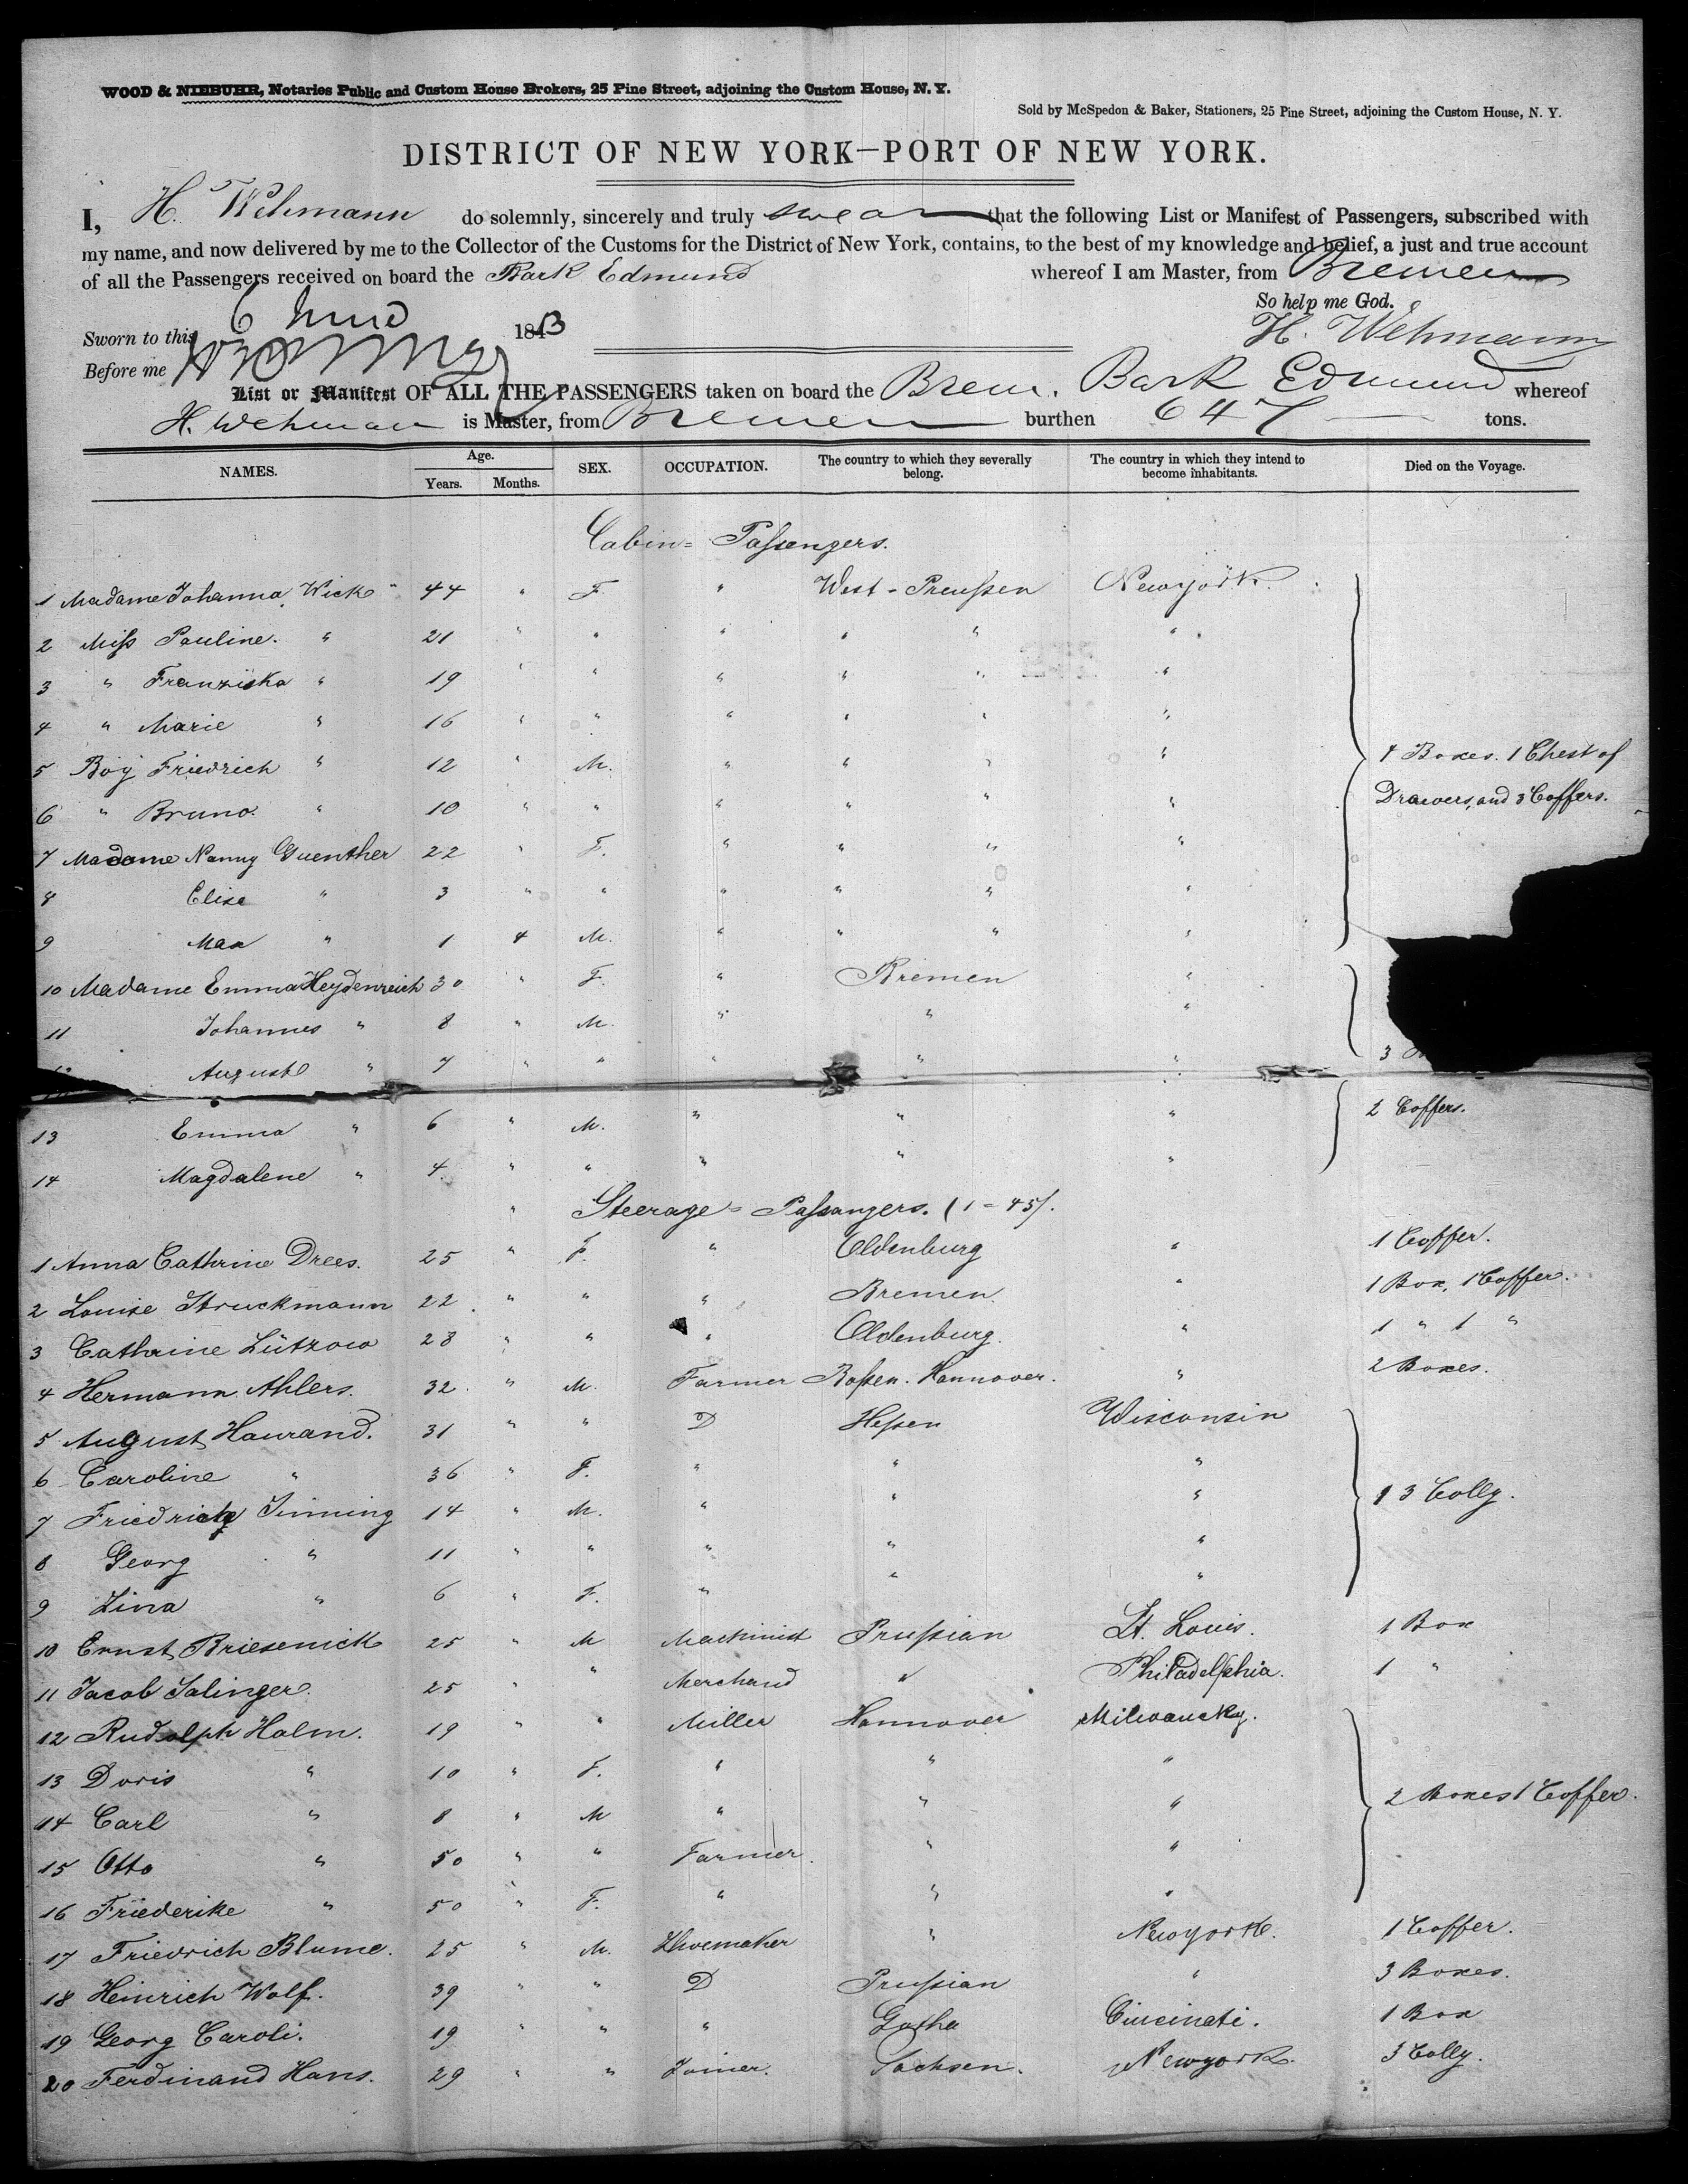 WOOD & NIEBUHR, Notaries Public and Custom House Brokers, 25 Pine Street, adjoining the Custom House, N. Y.
Sold by McSpedon & Baker, Stationers, 25 Pine Street, adjoining the Custom House, N. Y.
DISTRICT OF NEW YORK—PORT OF NEW YORK.
I, H. Wehmann do solemnly, sincerely and truly swear that the following List or Manifest of Passengers, subscribed with
my name, and now delivered by me to the Collector of the Customs for the District of New York, contains, to the best of my knowledge and belief, a just and true account
of all the Passengers received on board the Bark Edmund whereof I am Master, from Bremen
So help me God.
Sworn to this 6 June 1853 H. Wehmann
Before me
List or Manifest OF ALL THE PASSENGERS taken on board the Brem. Bark Edmund whereof
H. Wehmann is Master, from Bremen burthen 647 tons.
NAMES. Age. Years. Months. SEX. OCCUPATION. The country to which they severally belong. The country in which they intend to become inhabitants. Died on the Voyage.
Cabin= Passengers.
1 Madame Johanna Wick 44 " F. " West-Preußen Newyork.
2 Miß Pauline. " 21 " " " " " "
3 " Franziska " 19 " " " " " "
4 " Marie " 16 " " " " " "
5 Boy Friedrich " 12 " M. " " " " 4 Boxes. 1 Chest of
6 " Bruno. " 10 " " " " " " Drawers, and 3 Coffers.
7 Madame Nanny Guenther 22 " F. " " " "
8 Elise " 3 " " " " " "
9 Max " 1 4 M. " " " "
10 Madame Emma Heydenreich 30 " F. " Bremen "
11 Johannes " 8 " M. " " "
August " 7 " " " " " 3
13 Emma " 6 " M. " " " 2 Coffers.
14 Magdalene " 4. " " " " "
" Steerage= Passangers. (1=45).
1 Anna Cathrine Drees. 25 " F. " Oldenburg " 1 Coffer.
2 Louise Struckmann 22 " " " Bremen. " 1 Box, 1 Coffer.
3 Cathrine Lützow 28 " " " Oldenburg. " 1 " 1 "
4 Hermann Ahlers. 32 " M. Farmer Hannover. " 2 Boxes.
5 August Haurand. 31 " " D Heßen Wisconsin
6 Caroline " 36 " F. " " "
7 Friedrich Tinning 14 " M. " " " 13 Colly.
8 Georg " 11 " " " " "
9 Lina " 6 " F. " " "
10 Ernst Briesenick 25 " M Machinist Prußian St. Louis. 1 Box
11 Jacob Salinger. 25 " " Merchand " Philadelphia. 1 "
12 Rudolph Halm. 19 " " Miller Hannover Milwaucky.
13 Doris " 10 " F. " " "
14 Carl " 8 " M " " " 2 Boxes 1 Coffer.
15 Otto " 50 " " Farmer. " "
16 Friederike " 50 " F. " " "
17 Friedrich Blume. 25 " M. Shoemaker " Newyork. 1 Coffer.
18 Heinrich Wolf. 39 " " D Prußian " 3 Boxes.
19 Georg Caroli. 19 " " " Gotha Cincinati. 1 Box
20 Ferdinand Hans. 29 " " Joiner. Sachsen. Newyork. 3 Colly.